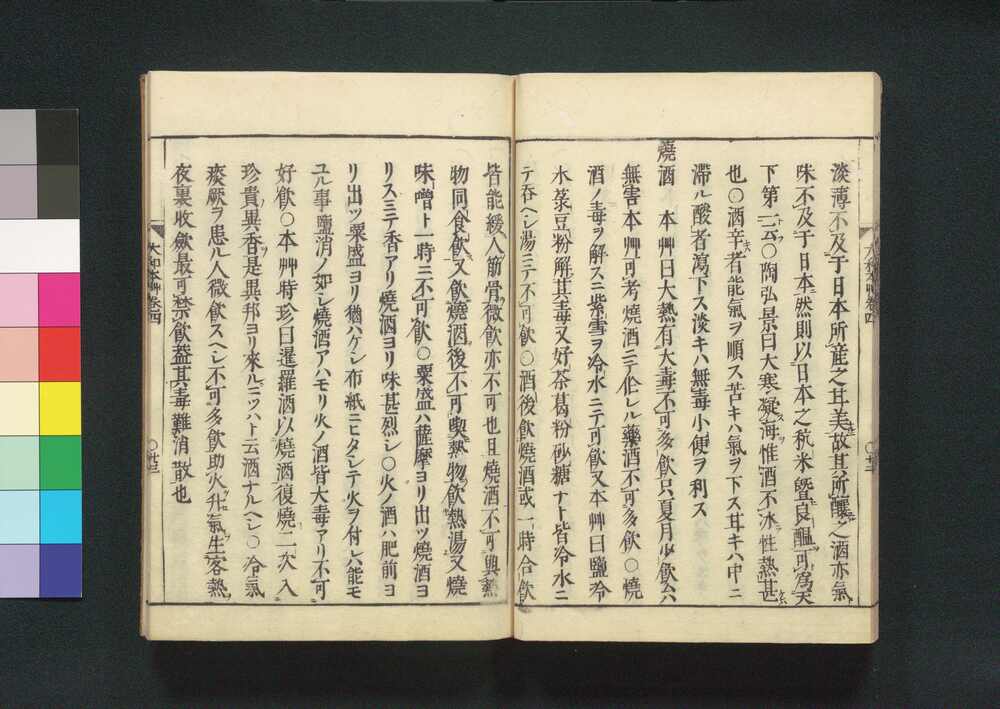 淡薄不及于日本所産之甘美故其所釀之酒亦氣
味不及于日本然則以日本之秔米曁良醞可為天
下第一云〇陶弘景曰大寒凝海惟酒不冰性熱甚
也〇酒辛キ者能氣ヲ順ス苦キハ氣ヲ下ス甘キハ中ニ
滞ル酸者瀉下ス淡キハ無毒小便ヲ利ス
燒酒 本艸曰大熱有大毒不可多飲只夏月少飲ム
無害本艸可考燒酒ニテ作レル藥酒不可多飲〇燒
酒ノ毒ヲ解スニ紫雪ヲ冷水ニテ可飲又本艸曰鹽冷
水菉豆粉解其毒又好茶葛粉砂糖ナト皆冷水ニ
テ吞ヘシ湯ニテ不可飲〇酒後飲燒酒或一時合飲
皆能緩人筋骨微飲亦不可也且燒酒不可與熱
物同食飲又飲燒酒後不可喫熱物飲熱湯又燒
味噌ト一時ニ不可飲〇粟盛ハ薩摩ヨリ出ツ燒酒ヨ
リスミテ香アリ燒酒ヨリ味甚烈シ〇火ノ酒ハ肥前ヨ
リ出ツ粟盛ヨリ猶ハケシ布紙ニヒタシテ火ヲ付レハ能モ
ユル事鹽消ノ如シ燒酒アハモリ火ノ酒皆大毒アリ不可
好飲〇本艸時珍曰暹羅酒以燒酒復燒二次入
珍貴異香是異邦ヨリ來ルニツハト云酒ナルヘシ〇冷氣
痰厥ヲ患ル人微飲スヘシ不可多飲助火升氣生客熱
夜裏收歛最可禁飲蓋其毒難消散也
大和本艸卷四
〇廿三